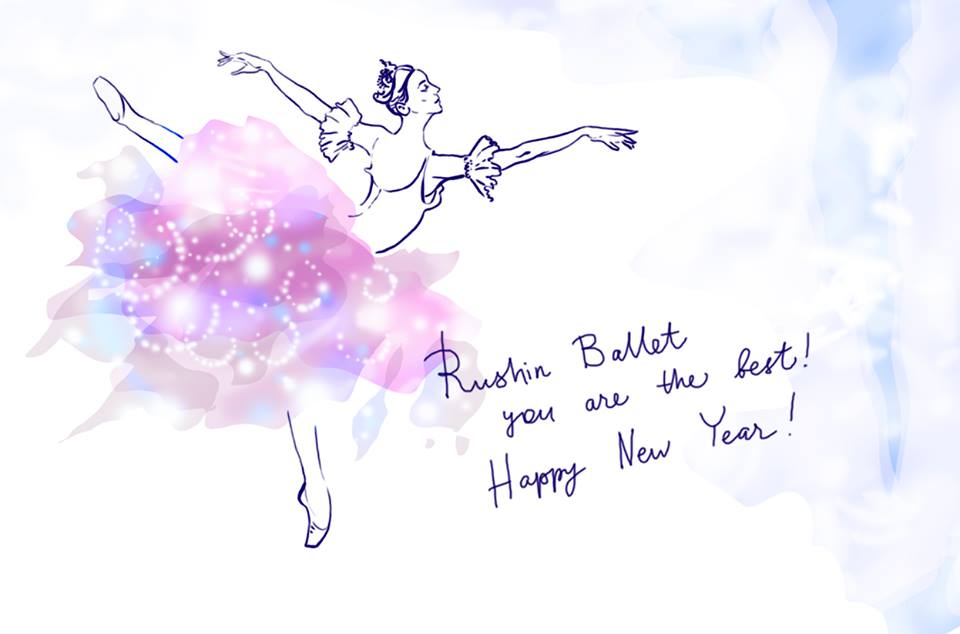 Rushin Ballet
you are the best!
Happy New Year!